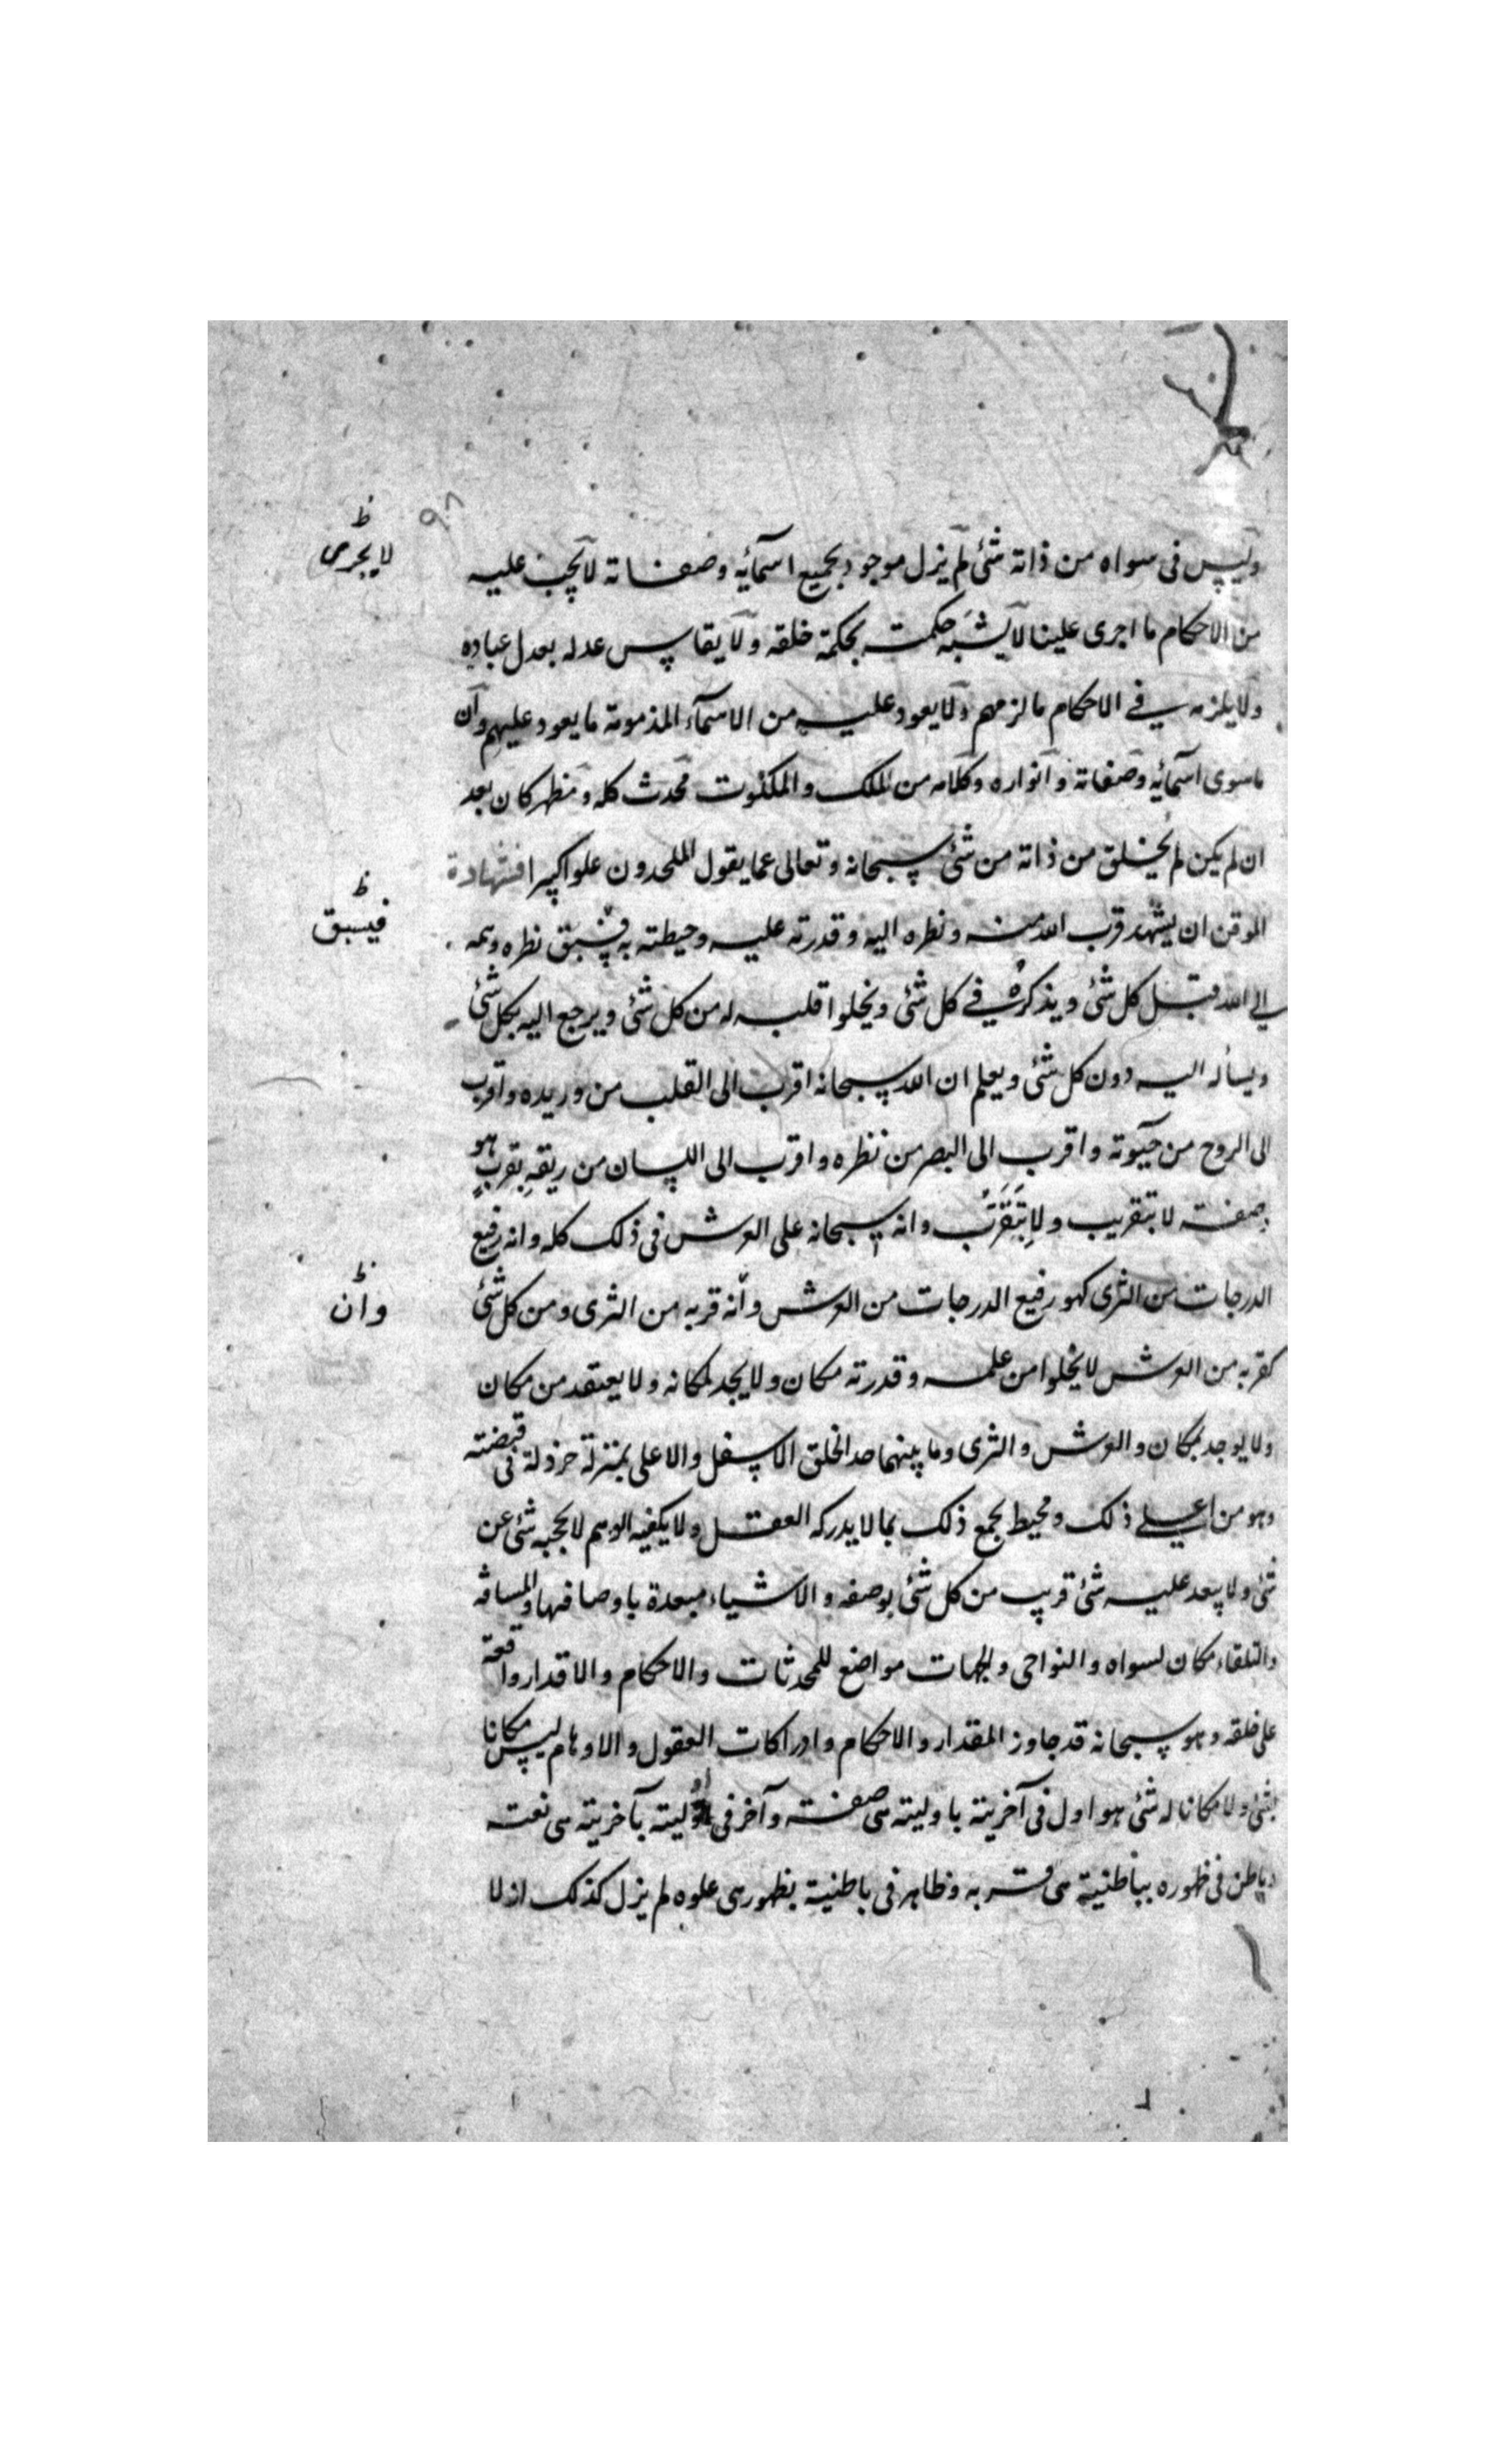 ٩٨
لا يجرى ظ
وليس فى سواه من ذاته شئ لم يزل موجود بجميع اسمآئه وصفاته لا يجب عليه
من الاحكام ما اجرى علينا لا يشبه حكمته بحكمة خلقه ولا يقاس عدله بعدل عباده
ولا يلزمه في الاحكام ما لزمهم ولا يعود عليه من الاسمآء المذمومة ما يعود عليهم وان
ما سوى اسمآئه وصفاته وانواره وكلامه من الملك والملكوت محدث كله ومظهر كان بعد
ان لم يكن لم يخلق من ذاته من شئ سبحانه وتعالى عما يقول الملحدون علوا كبيرا فشهادة
الموقن ان يشهد قرب الله منه ونظره اليه وقدرته عليه وحيطته به فسبق نظره وهمه
فيسبق ظ
الى الله قبل كل شئ ويذكره في كل شئ ويخلوا قلبه له من كل شئ ويرجع اليه بكل شئ
ويساله اليه دون كل شئ ويعلم ان الله سبحانه اقرب الى القلب من وريده واقرب
الى الروح من حيوته واقرب الى البصر من نظره واقرب الى اللسان من ريقه بقرب هو
صفته لا بتقريب ولا بتقرب وانه سبحانه على العرش فى ذلك كله وانه رفيع
الدرجات من الثرى كهو رفيع الدرجات من العرش وانه قربه من الثرى ومن كل شئ
وان ظ
كقربه من العرش لا يخلوا من علمه وقدرته مكان ولا يجد لمكانه ولا يعتقد من مكان
ولا يوجد بمكان والعرش والثرى وما بينهما حد الخلق الاسفل والاعلى بمنزلة خردلة فى قبضته
وهو من اعلى ذلك ومحيط بجمع ذلك بما لا يدركه العقل ولا يكفيه الوهم لا يحجبه شئ عن
شئ ولا يبعد عليه شئ قريب من كل شئ بوصفه والاشياء مبعدة باوصافها والمسافه
والتلقاء مكان لسواه والنواحى والجهات مواضع للمحدثات والاحكام والاقدار واقعة
على خلقه وهو سبحانه قد جاوز المقدار والاحكام وادراكات العقول والاوهام ليس مكانا
لشئ ولا مكانا له شئ هو اول فى آخريته باوليته هى صفته وآخر فى اوليته بآخريته هى نعته
وباطن فى ظهوره بباطنية هى قربه وظاهر فى باطنيته بظهور هى علوه لم يزل كذلك ازلا